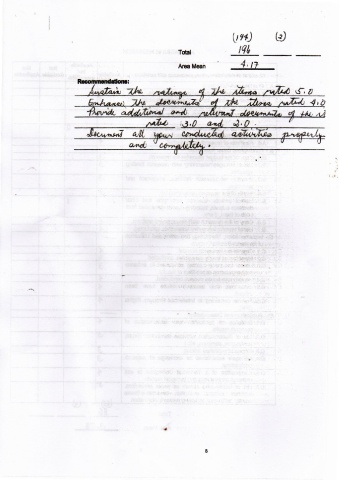 (194) (2)
Total 196
Area Mean 4.17
Recommendations:
Sustain the ratings of the items rated 5.0
Enhance the documents of the items rated 4.0
Provide additional and relevant documents of the
rated 3.0 and 2.0.
Document all your conducted activities properly
and completely.